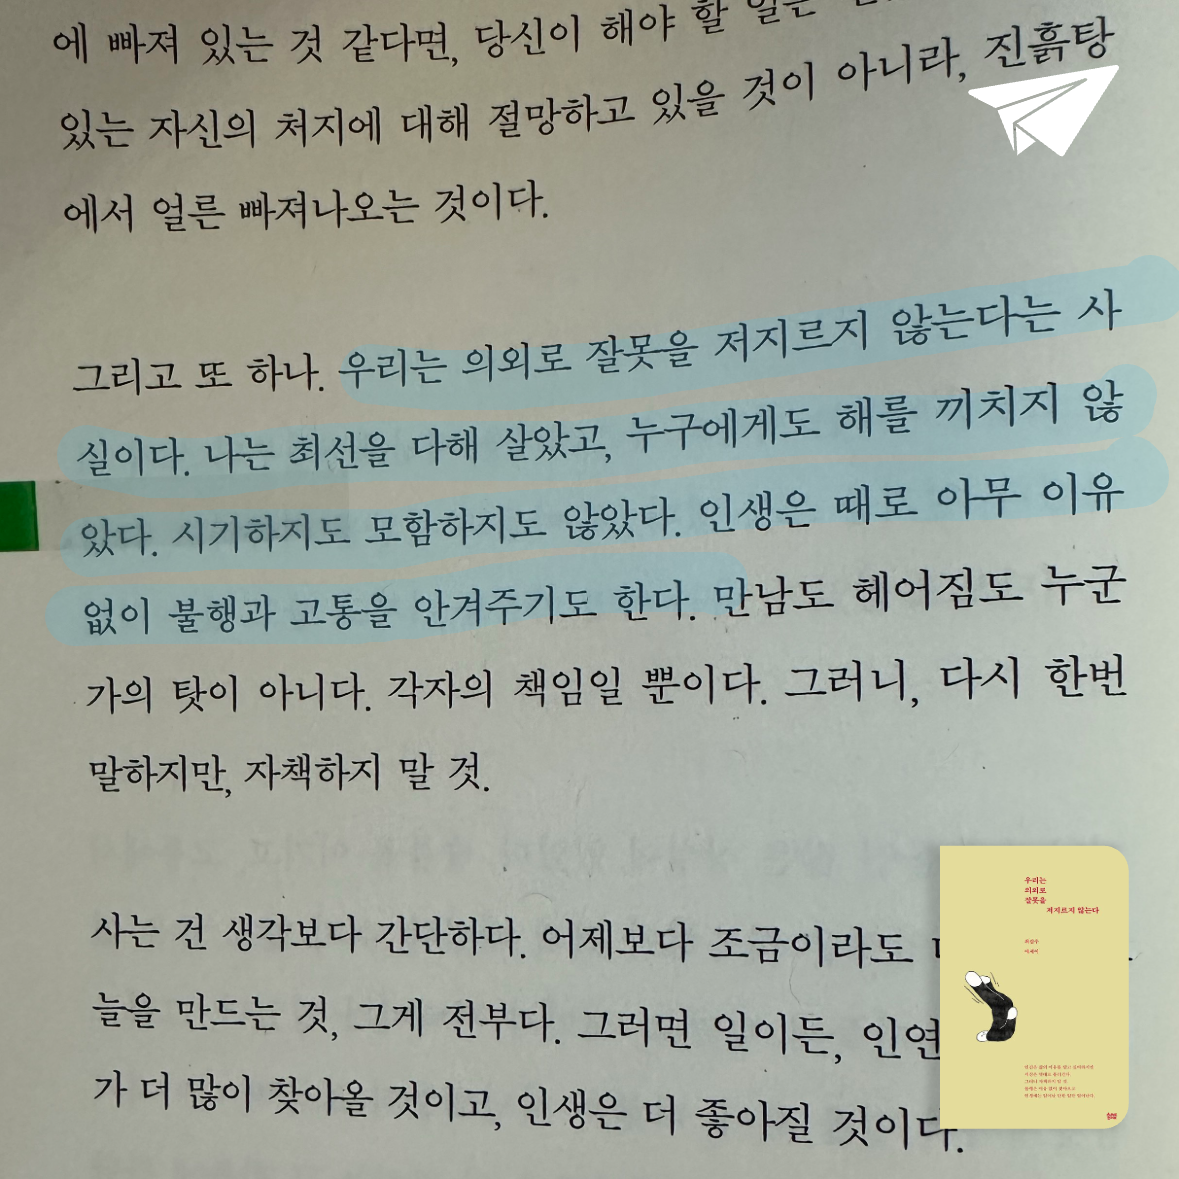 에 빠져 있는 것 같다면, 당신이 해야 할 일은
있는 자신의 처지에 대해 절망하고 있을 것이 아니라, 진흙탕
에서 얼른 빠져나오는 것이다.
그리고 또 하나. 우리는 의외로 잘못을 저지르지 않는다는 사
실이다. 나는 최선을 다해 살았고, 누구에게도 해를 끼치지 않
았다. 시기하지도 모함하지도 않았다. 인생은 때로 아무 이유
없이 불행과 고통을 안겨주기도 한다. 만남도 헤어짐도 누군
가의 탓이 아니다. 각자의 책임일 뿐이다. 그러니, 다시 한번
말하지만, 자책하지 말 것.
사는 건 생각보다 간단하다. 어제보다 조금이라도
늘을 만드는 것, 그게 전부다. 그러면 일이든, 인연
가 더 많이 찾아올 것이고, 인생은 더 좋아질 것이다.
우리는
의외로
잘못을
저지르지 않는다
에세이